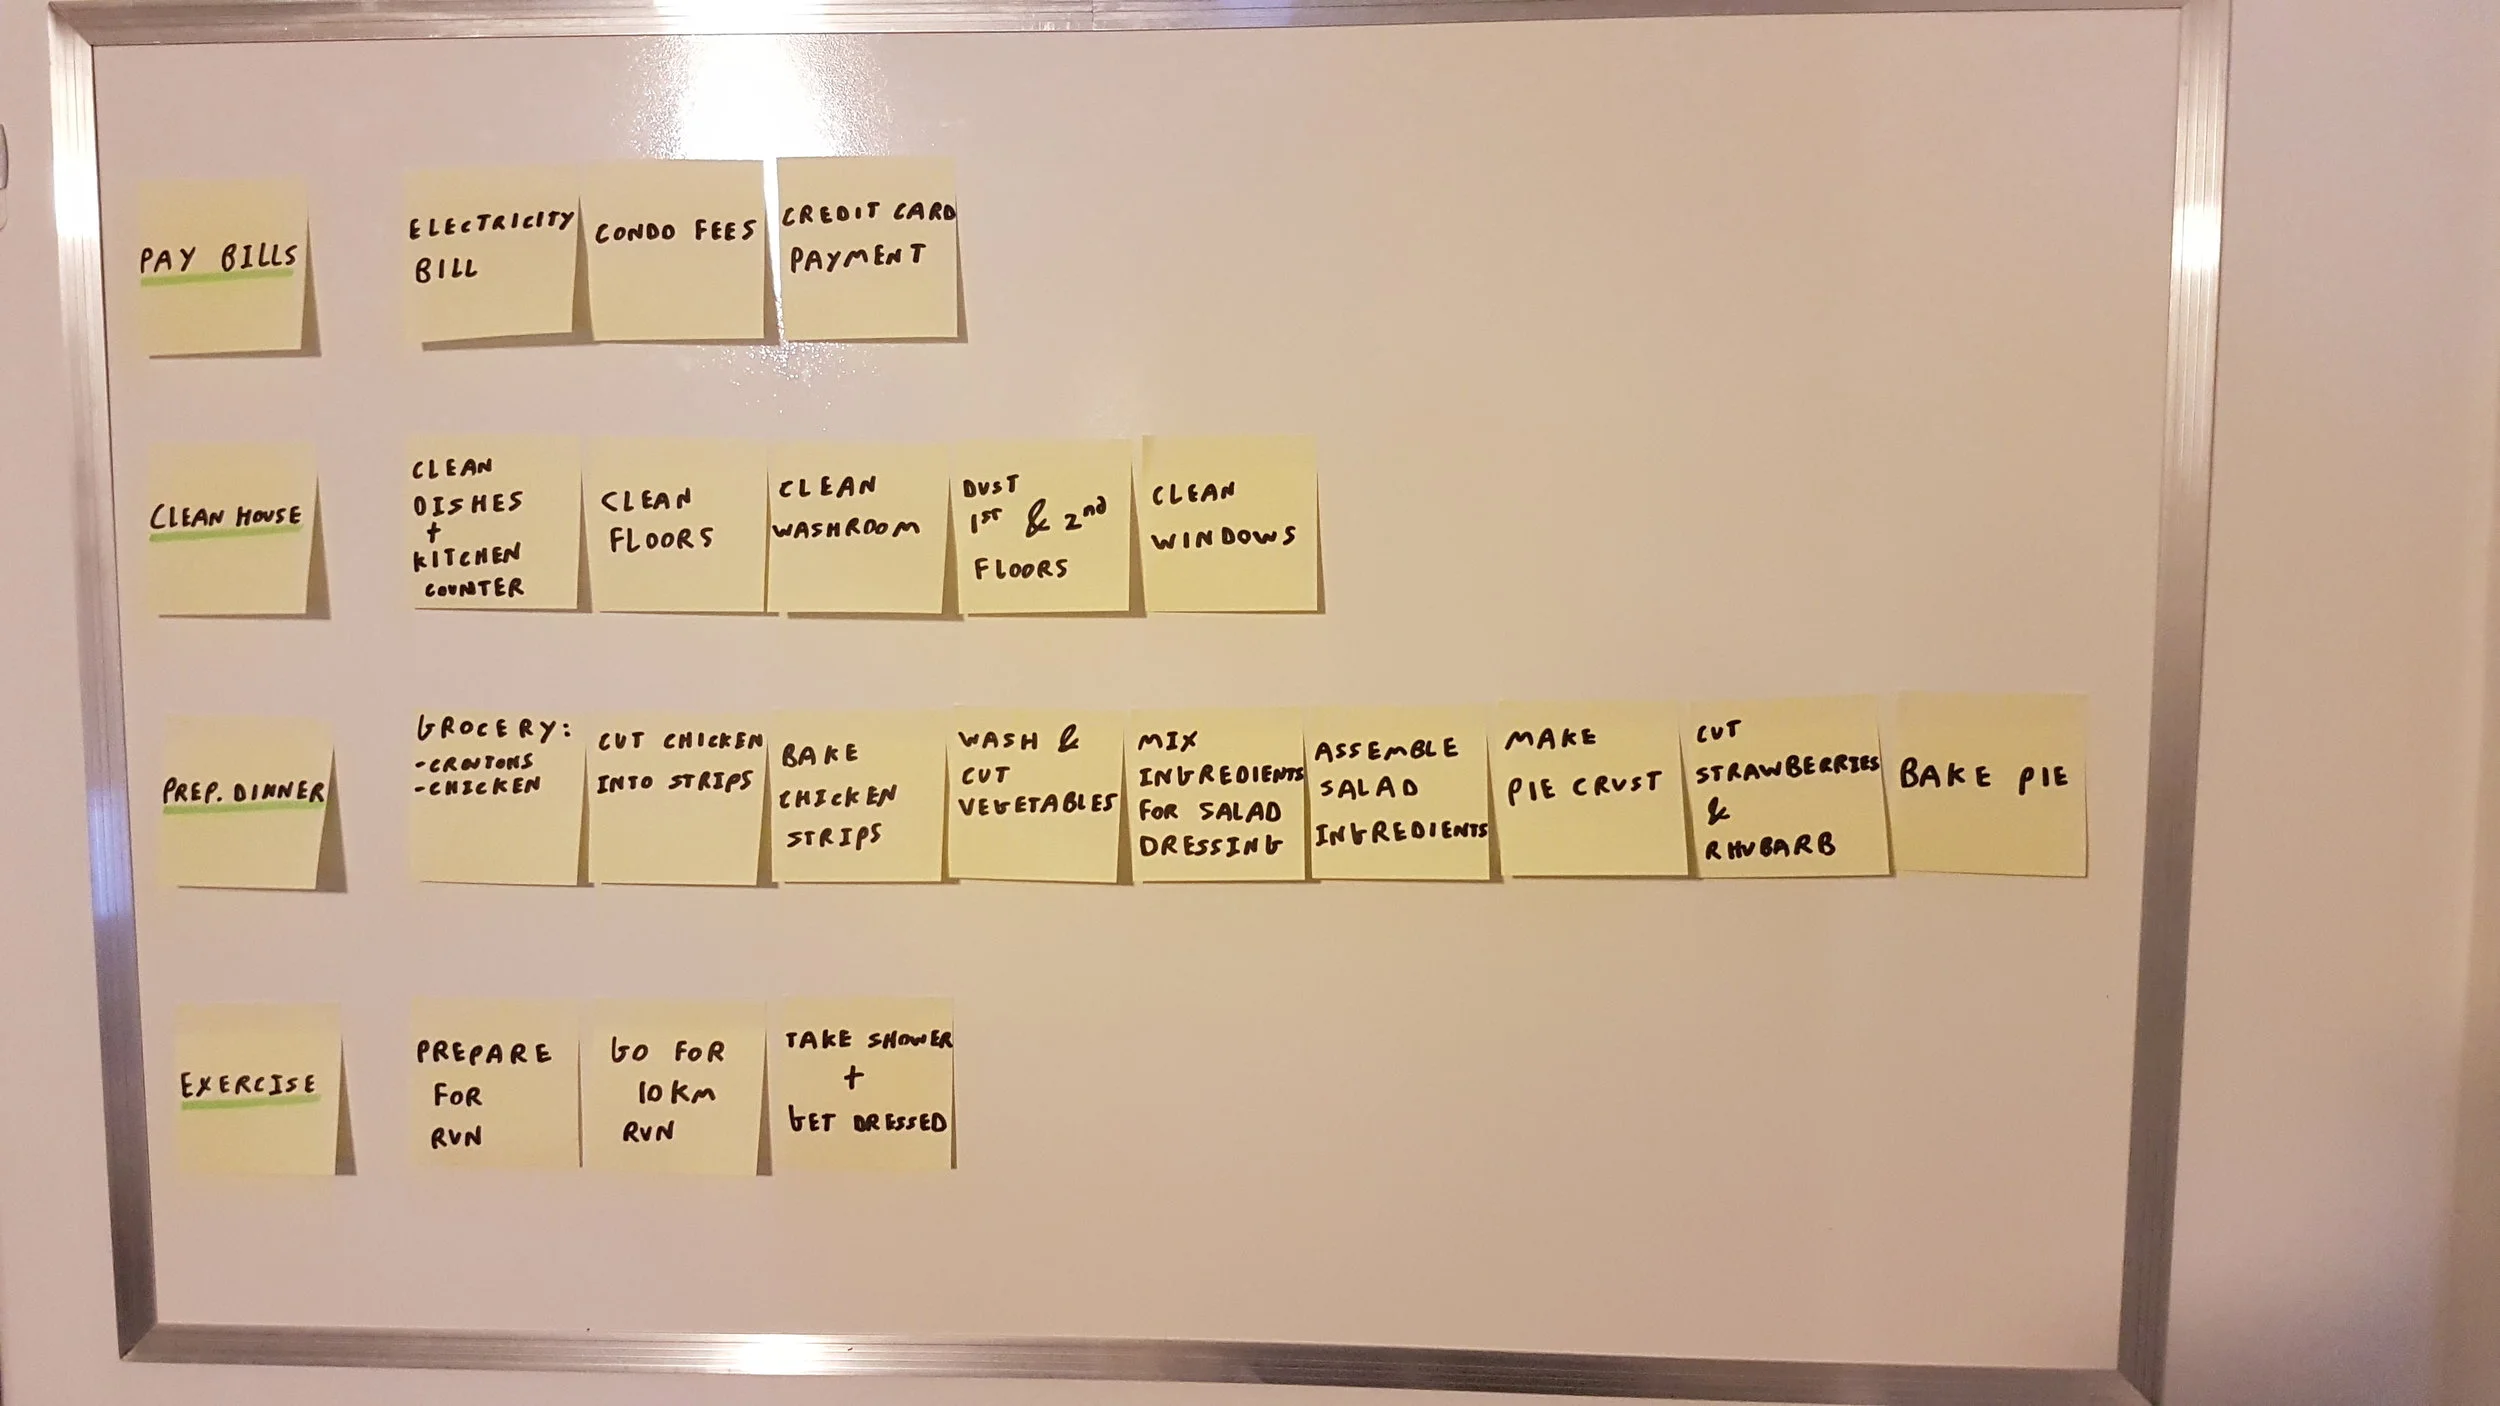 PAY BILLS
ELECTRICITY
BILL
CONDO FEES
CREDIT CARD
PAYMENT
CLEAN HOUSE
CLEAN
DISHES
+
KITCHEN
COUNTER
CLEAN
FLOORS
CLEAN
WASHROOM
DUST
1ST & 2nd
FLOORS
CLEAN
WINDOWS
PREP. DINNER
GROCERY:
-CROUTONS
-CHICKEN
CUT CHICKEN
INTO STRIPS
BAKE
CHICKEN
STRIPS
WASH &
CUT
VEGETABLES
MIX
INGREDIENTS
FOR SALAD
DRESSING
ASSEMBLE
SALAD
INGREDIENTS
MAKE
PIE CRUST
CUT
STRAWBERRIES
&
RHUBARB
BAKE PIE
EXERCISE
PREPARE
FOR
RUN
GO FOR
10 KM
RUN
TAKE SHOWER
+
GET DRESSED